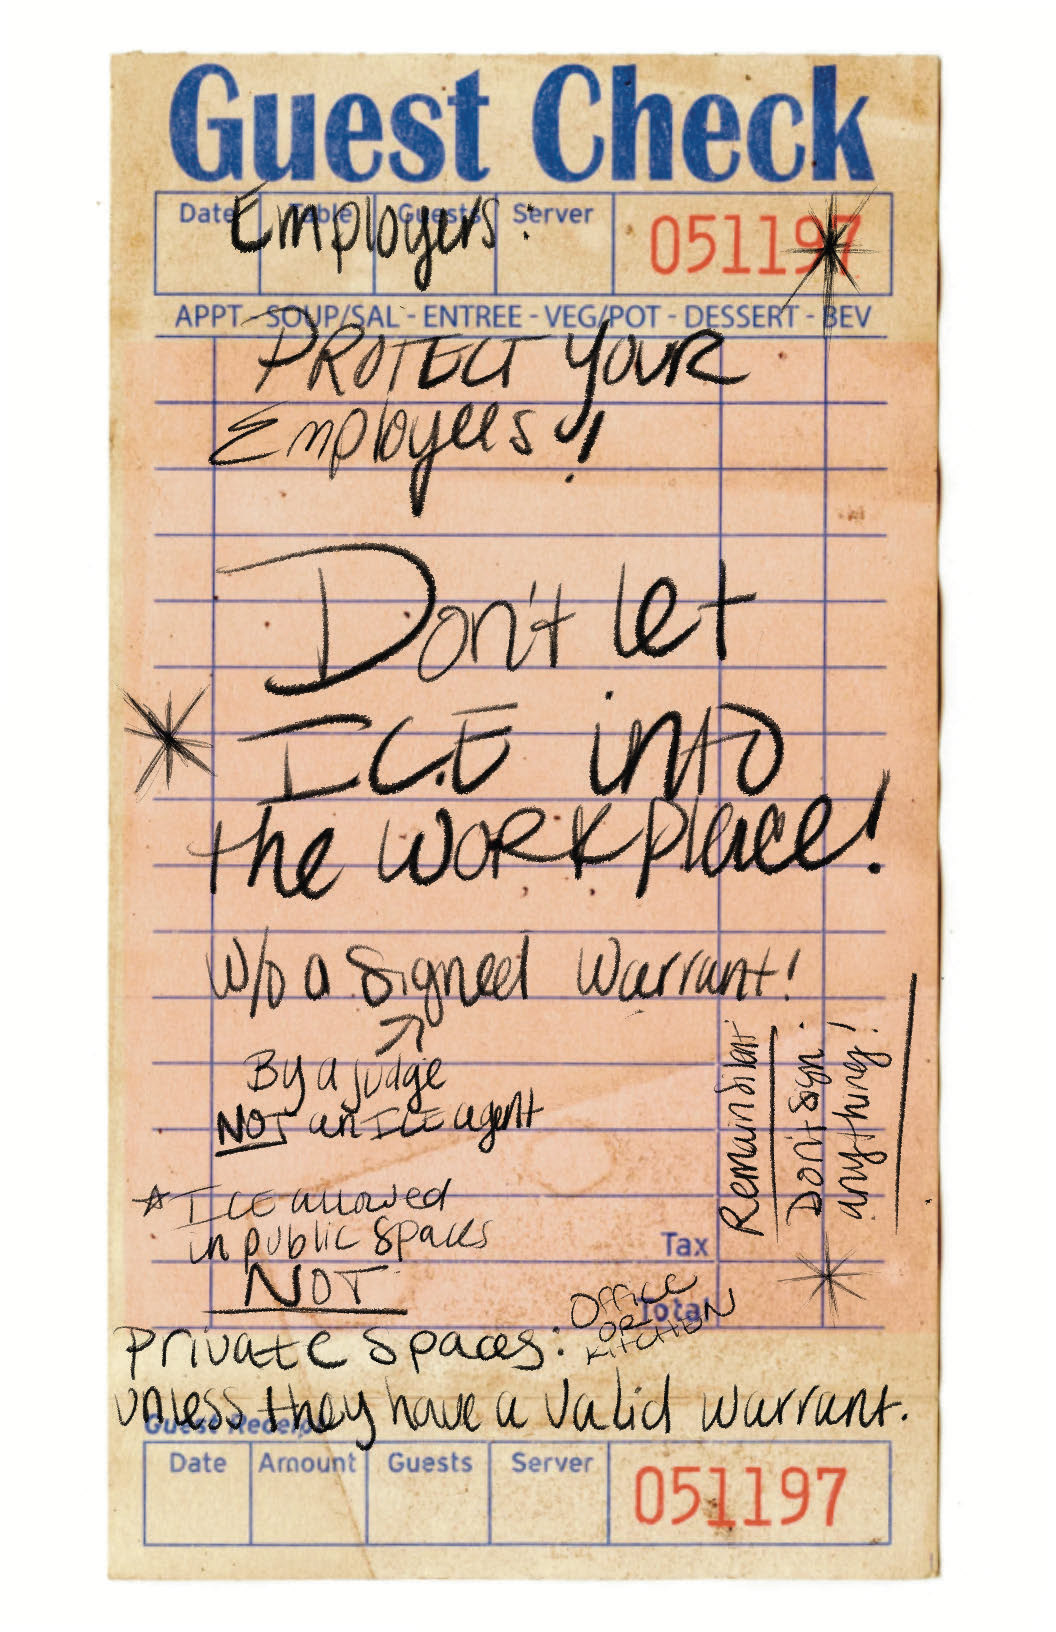 Guest Check
Date Table Guests Server 051197
Employers:
APPT - SOUP/SAL - ENTREE - VEG/POT - DESSERT - BEV
PROTECT YOUR
Employees!!
Don't let
ICE into
the workplace!
W/o a signed warrant!
By a judge
NOT an ICE agent
Remain Silent
Don't Sign
anything!
☆ ICE allowed
in public spaces
NOT
Tax
Total
Private spaces: OFFICE
OR
KITCHEN
unless they have a valid warrant.
Guest Receipt
Date Amount Guests Server 051197